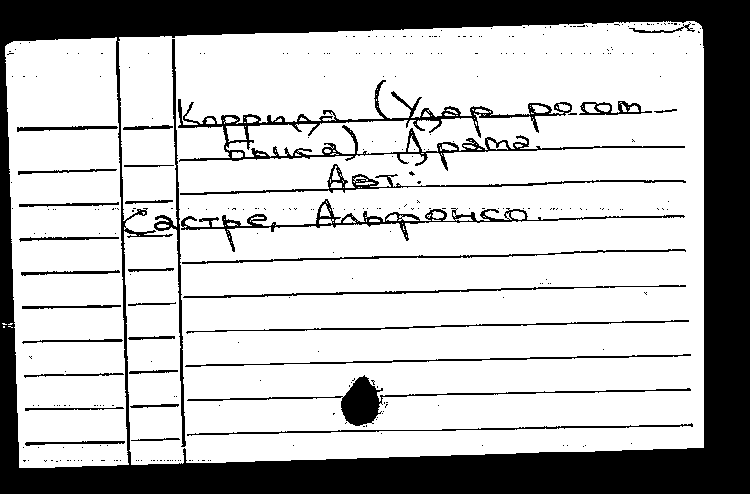 Коррида (Удар рогом
быка). Драма.
Авт.:
Састре, Альфонсо.